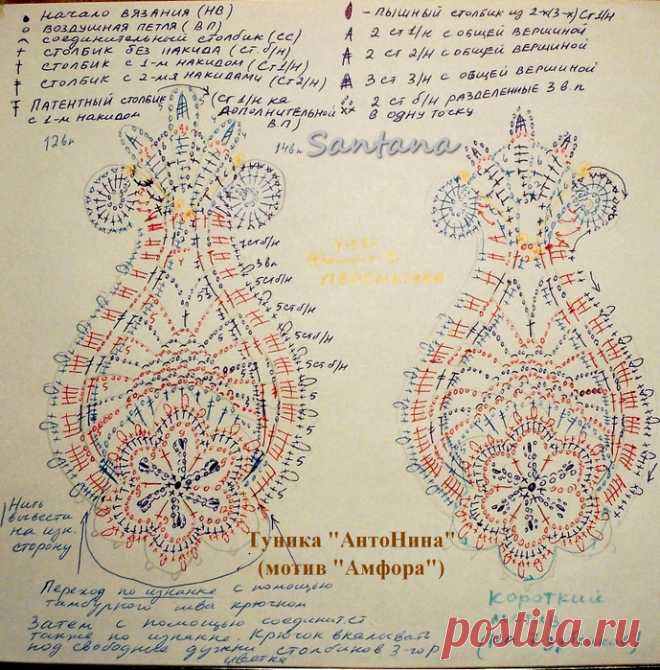 • НАЧАЛО ВЯЗАНИЯ (НВ)
ВОЗДУШНАЯ ПЕТЛЯ (ВП)
СОЕДИНИТЕЛЬНЫЙ СТОЛБИК (СС)
СТОЛБИК БЕЗ НАКИДА (СТ. б/н)
СТОЛБИК С 1-М НАКИДОМ (СТ1/Н)
СТОЛБИК С 2-МЯ НАКИДАМИ (СТ2/Н)
ПАТЕНТНЫЙ СТОЛБИК (СТ 1/Н НА
С 1-М НАКИДОМ ДОПОЛНИТЕЛЬНОЙ
В.П)
- ПЫШНЫЙ СТОЛБИК ИЗ 2-х(3-х) СТ1/Н
2 СТ 1/Н С ОБЩЕЙ ВЕРШИНОЙ
2 СТ 2/Н С ОБЩЕЙ ВЕРШИНОЙ
3 СТ 3/Н С ОБЩЕЙ ВЕРШИНОЙ
2 СТ б/Н РАЗДЕЛЕННЫЕ 3 В.П
В ОДНУ ТОЧКУ
12вп
14вп
Santana
3вп
5стб/н
5стб/н
5стб/н
5стб/н
5
5
5
Нить
вывести
на изн.
сторону
Туника "АнтоНина"
(мотив "Амфора")
Переход по изнанке с помощью
тамбурного шва крючком
Затем с помощью соединит.ст
также по изнанке. Крючок вкалывать
под свободные дужки столбиков 3-го р
цветка
КОРОТКИЙ
postila.ru